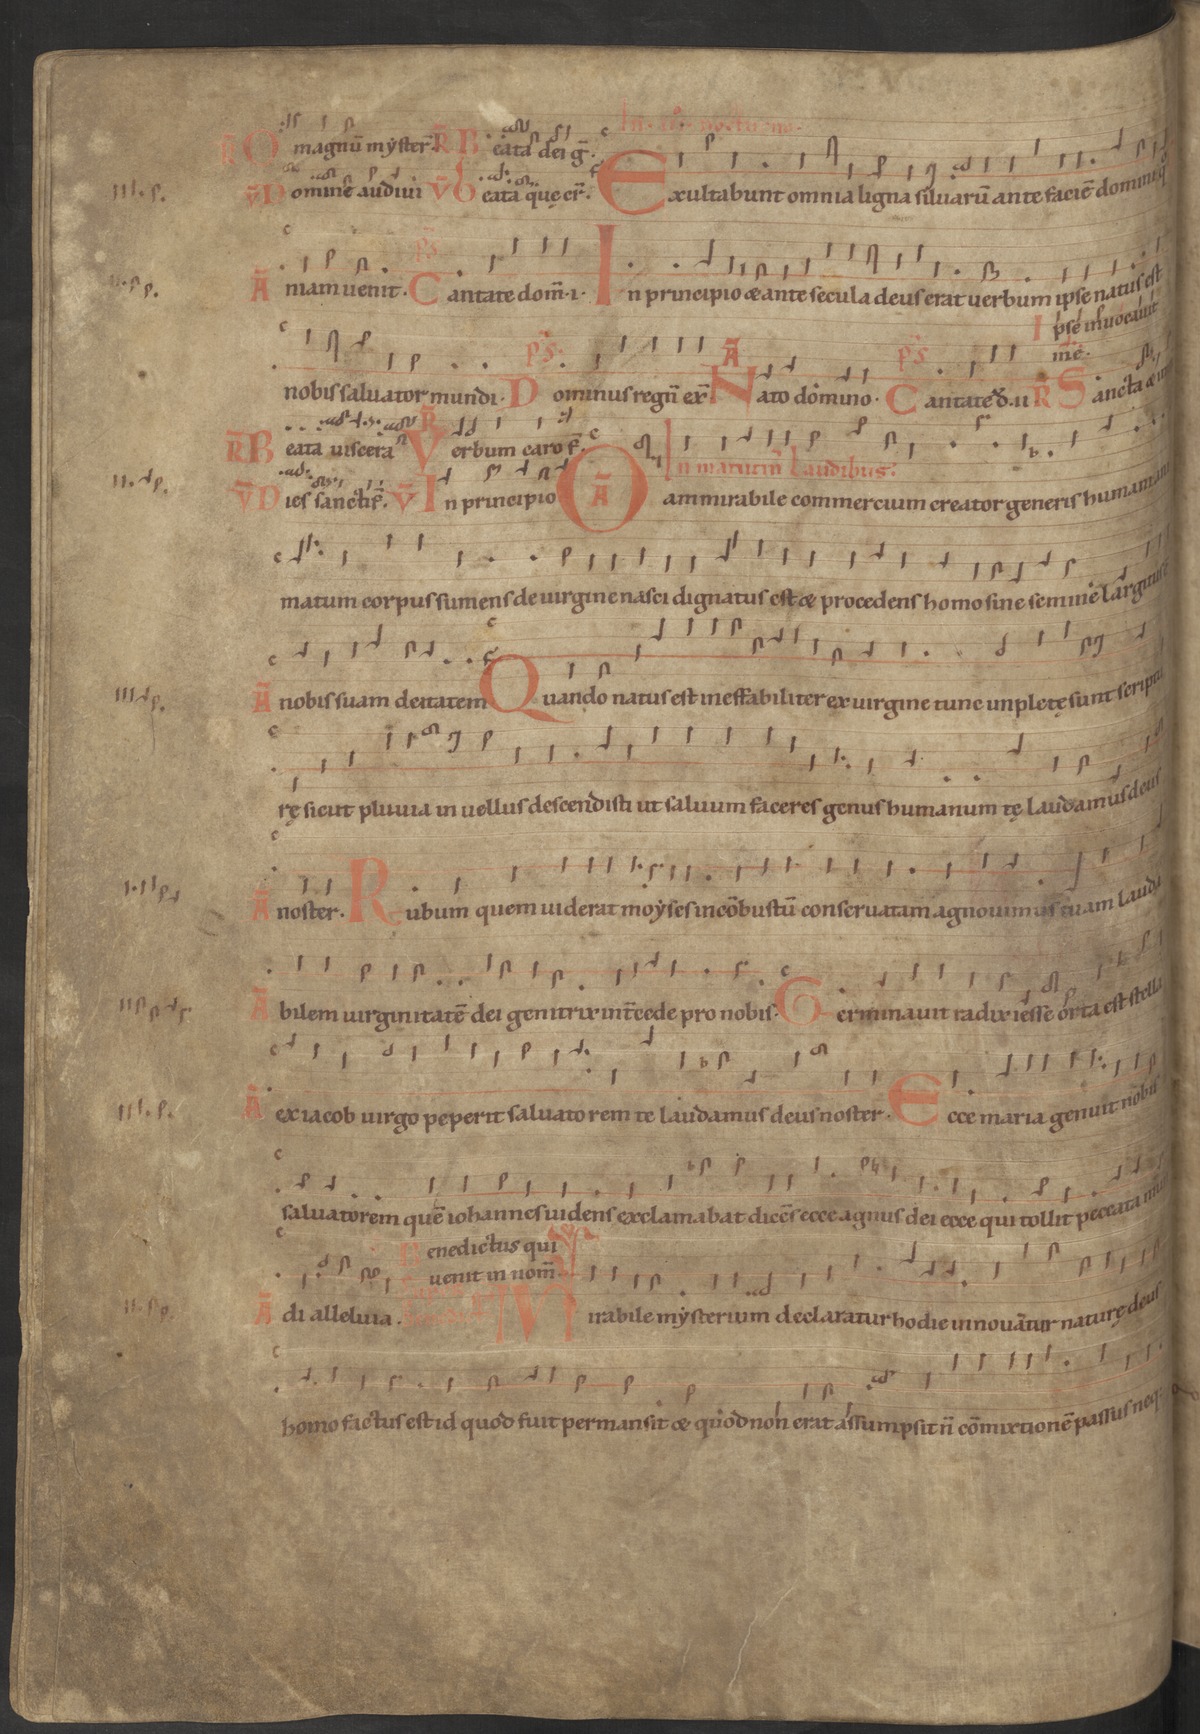 In. iii. nocturno.
R O magnū mẏster̄. R Beata dei ḡ.
V Domine audiui V Beata quę cr̄. Exultabunt omnia ligna siluarū ante faciē domini q̄
A niam uenit. Cantate dom̄. i. In principio & ante secula deus erat uerbum ipse natus est
Ipse inuocauit
nobis saluator mundi. ps. Dominus regn̄ ex̄ A Nato domino. ps Cantate d. ii R Sancta & im
me.
R Beata uiscera R Verbum caro f̄. In matutin̄ laudibus.
V Dies sanctif̄. V In principio A O ammirabile commercium creator generis humani ani
matum corpus sumens de uirgine nasci dignatus est & procedens homo sine semine largitus ē
A nobis suam deitatem Quando natus est ineffabiliter ex uirgine tunc inpletę sunt scriptu
rę sicut pluuia in uellus descendisti ut saluum faceres genus humanum tę laudamus deus
A noster. Rubum quem uiderat moẏses incōbustū conseruatam agnouimus tuam lauda
A bilem uirginitatē dei genitrix int̄cede pro nobis. Germinauit radix iesse orta est stella
A ex iacob uirgo peperit saluatorem te laudamus deus noster. Ecce maria genuit nobis
saluatorem quē iohannes uidens exclamabat dicēs ecce agnus dei ecce qui tollit peccata mun
Benedictus qui
uenit in nom̄
A di alleluia. Mirabile mẏsterium declaratur hodie innouātur naturę deus
homo factus est id quod fuit permansit & quod non erat assumpsit n̄ cōmixtionē passus neq;